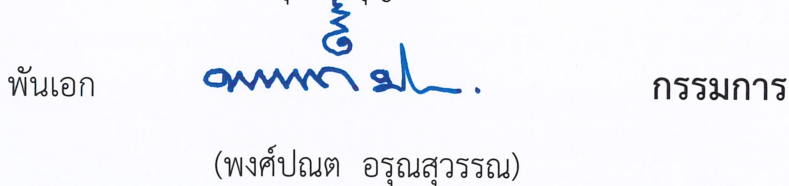 พันเอก กรรมการ
(พงศ์ปณต อรุณสุวรรณ)